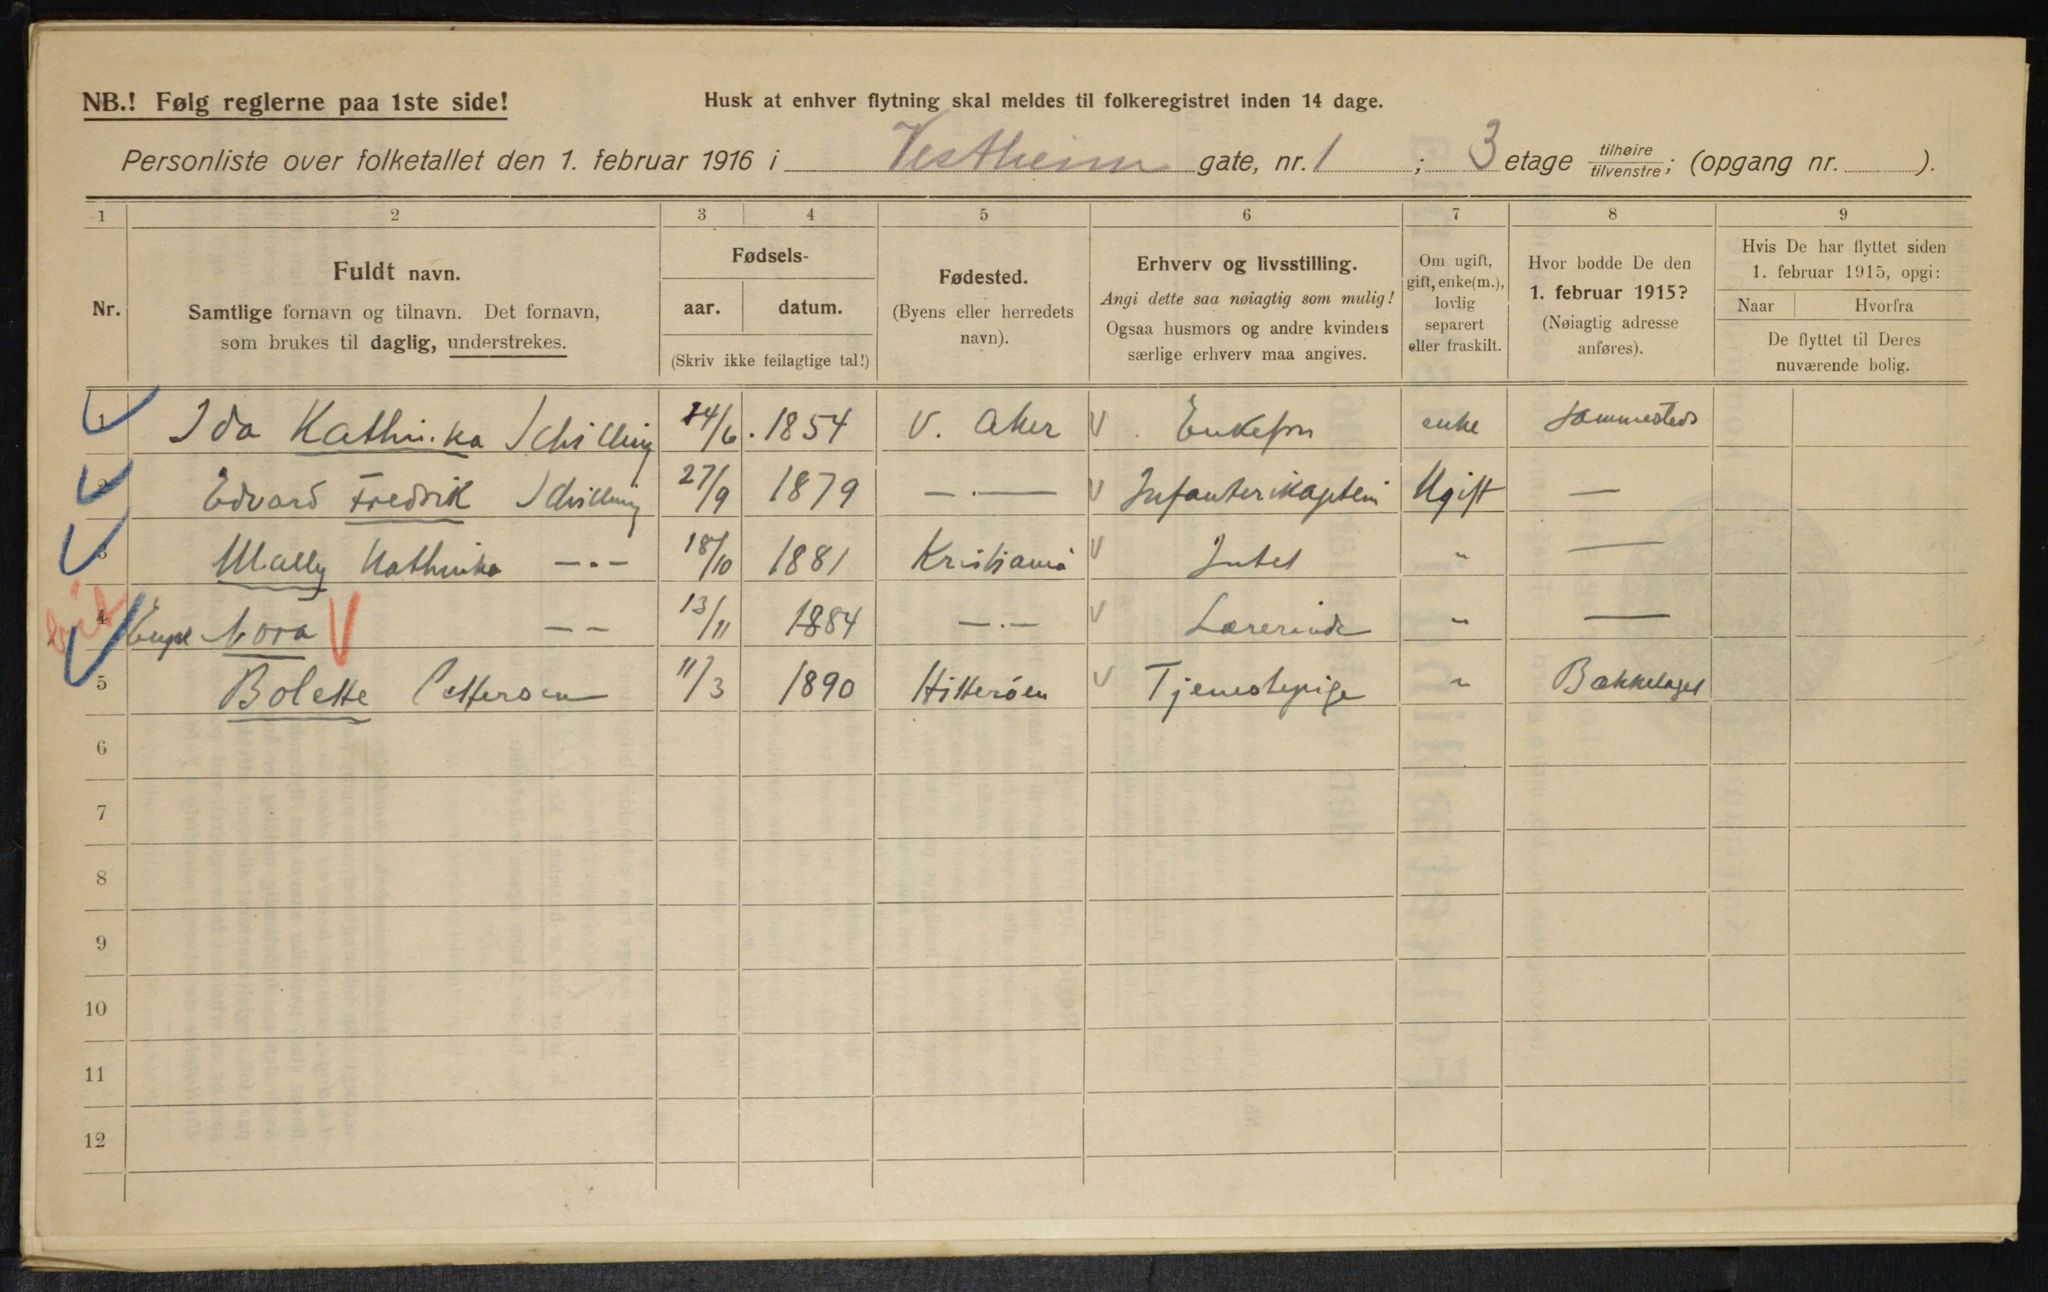 NB.! Følg reglerne paa 1ste side!
Husk at enhver flytning skal meldes til folkeregistret inden 14 dage.
Personliste over folketallet den 1. februar 1916 i Vestheim gate, nr. 1 ; 3 etage tilhøire tilvenstre; (opgang nr. ).
1 2 3 4 5 6 7 8 9
Nr.
Fuldt navn.
Samtlige fornavn og tilnavn. Det fornavn,
som brukes til daglig, understrekes.
Fødsels-
aar. datum.
(Skriv ikke feilagtige tal!)
Fødested.
(Byens eller herredets
navn).
Erhverv og livsstilling.
Angi dette saa nøiagtig som mulig!
Ogsaa husmors og andre kvinders
særlige erhverv maa angives.
Om ugift,
gift, enke(m.),
lovlig
separert
eller fraskilt.
Hvor bodde De den
1. februar 1915?
(Nøiagtig adresse
anføres).
Hvis De har flyttet siden
1. februar 1915, opgi:
Naar Hvorfra
De flyttet til Deres
nuværende bolig.
1 Ida Kathinka Schilling 24/6. 1854 V. Aker V Enkefru enke Sammesteds
2 Edvard Fredrik Schilling 27/9 1879 — . — V Infanterikaptein Ugift —
3 Mally Kathinka — . — 18/10 1881 Kristiania V Intet " —
4 Nora V — — 13/11 1884 — . — V Lærerinde " —
5 Bolette Pettersen 11/3 1890 Hitterøen V Tjenestepige " Bækkelaget
6
7
8
9
10
11
12